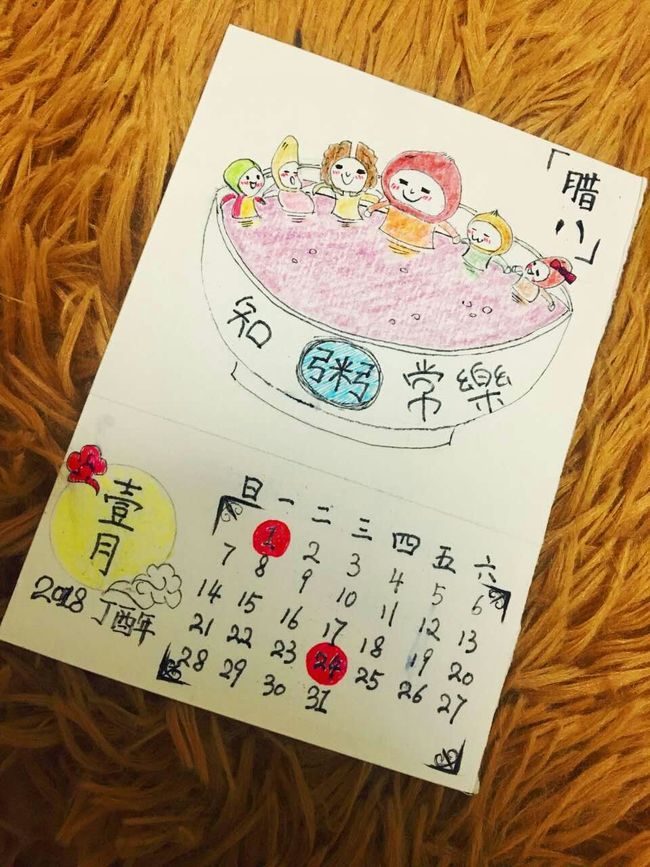 「腊八」
知粥常樂
壹月
2018 丁酉年
日 一 二 三 四 五 六
1 2 3 4 5 6
7 8 9 10 11 12 13
14 15 16 17 18 19 20
21 22 23 24 25 26 27
28 29 30 31